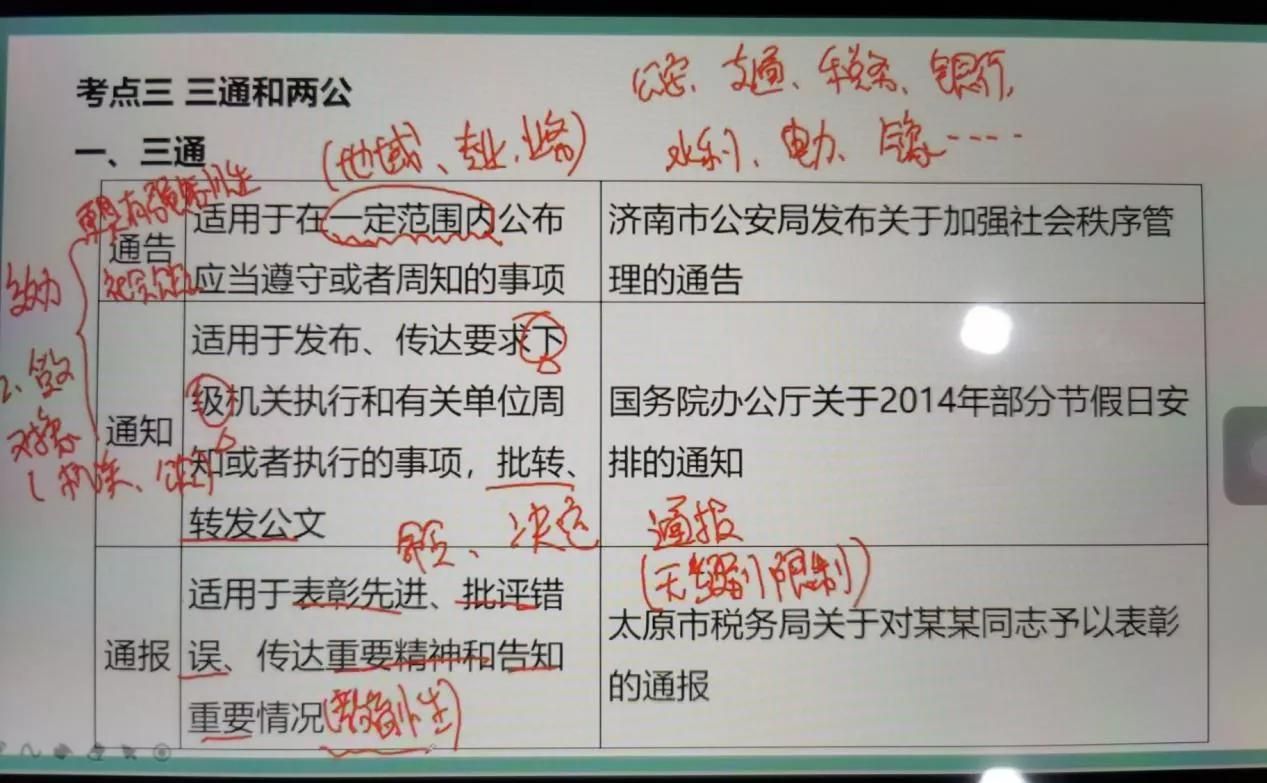 考点三 三通和两公
公安、交通、税务、银行,
一、三通
(地域、专业、业务)
水利、电力、
通告
适用于在一定范围内公布
应当遵守或者周知的事项
济南市公安局发布关于加强社会秩序管
理的通告
效力
2、
对象
通知
适用于发布、传达要求下
级机关执行和有关单位周
知或者执行的事项，批转、
转发公文
国务院办公厅关于2014年部分节假日安
排的通知
决定
通报
(无级别限制)
通报
适用于表彰先进、批评错
误、传达重要精神和告知
重要情况(教育性)
太原市税务局关于对某某同志予以表彰
的通报